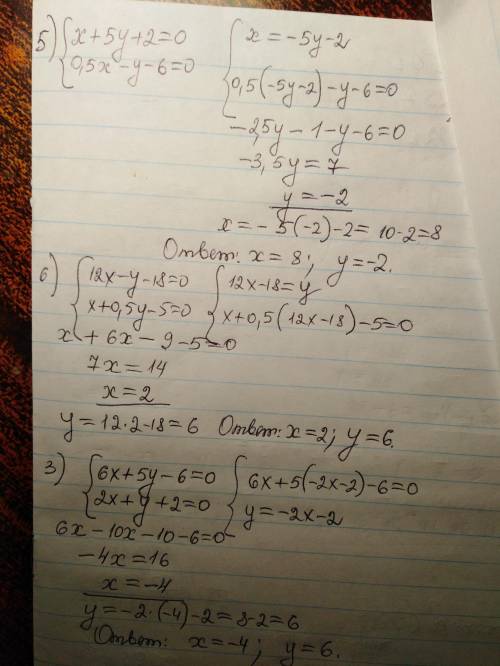 5) { x + 5y + 2 = 0 { x = -5y - 2
0,5x - y - 6 = 0 0,5(-5y - 2) - y - 6 = 0
-2,5y - 1 - y - 6 = 0
-3,5y = 7
y = -2
x = -5(-2) - 2 = 10 - 2 = 8
Ответ: x = 8; y = -2.
6) { 12x - y - 18 = 0 { 12x - 18 = y
x + 0,5y - 5 = 0 x + 0,5(12x - 18) - 5 = 0
x + 6x - 9 - 5 = 0
7x = 14
x = 2
y = 12·2 - 18 = 6 Ответ: x = 2; y = 6.
3) { 6x + 5y - 6 = 0 { 6x + 5(-2x - 2) - 6 = 0
2x + y + 2 = 0 y = -2x - 2
6x - 10x - 10 - 6 = 0
-4x = 16
x = -4
y = -2·(-4) - 2 = 8 - 2 = 6
Ответ: x = -4; y = 6.